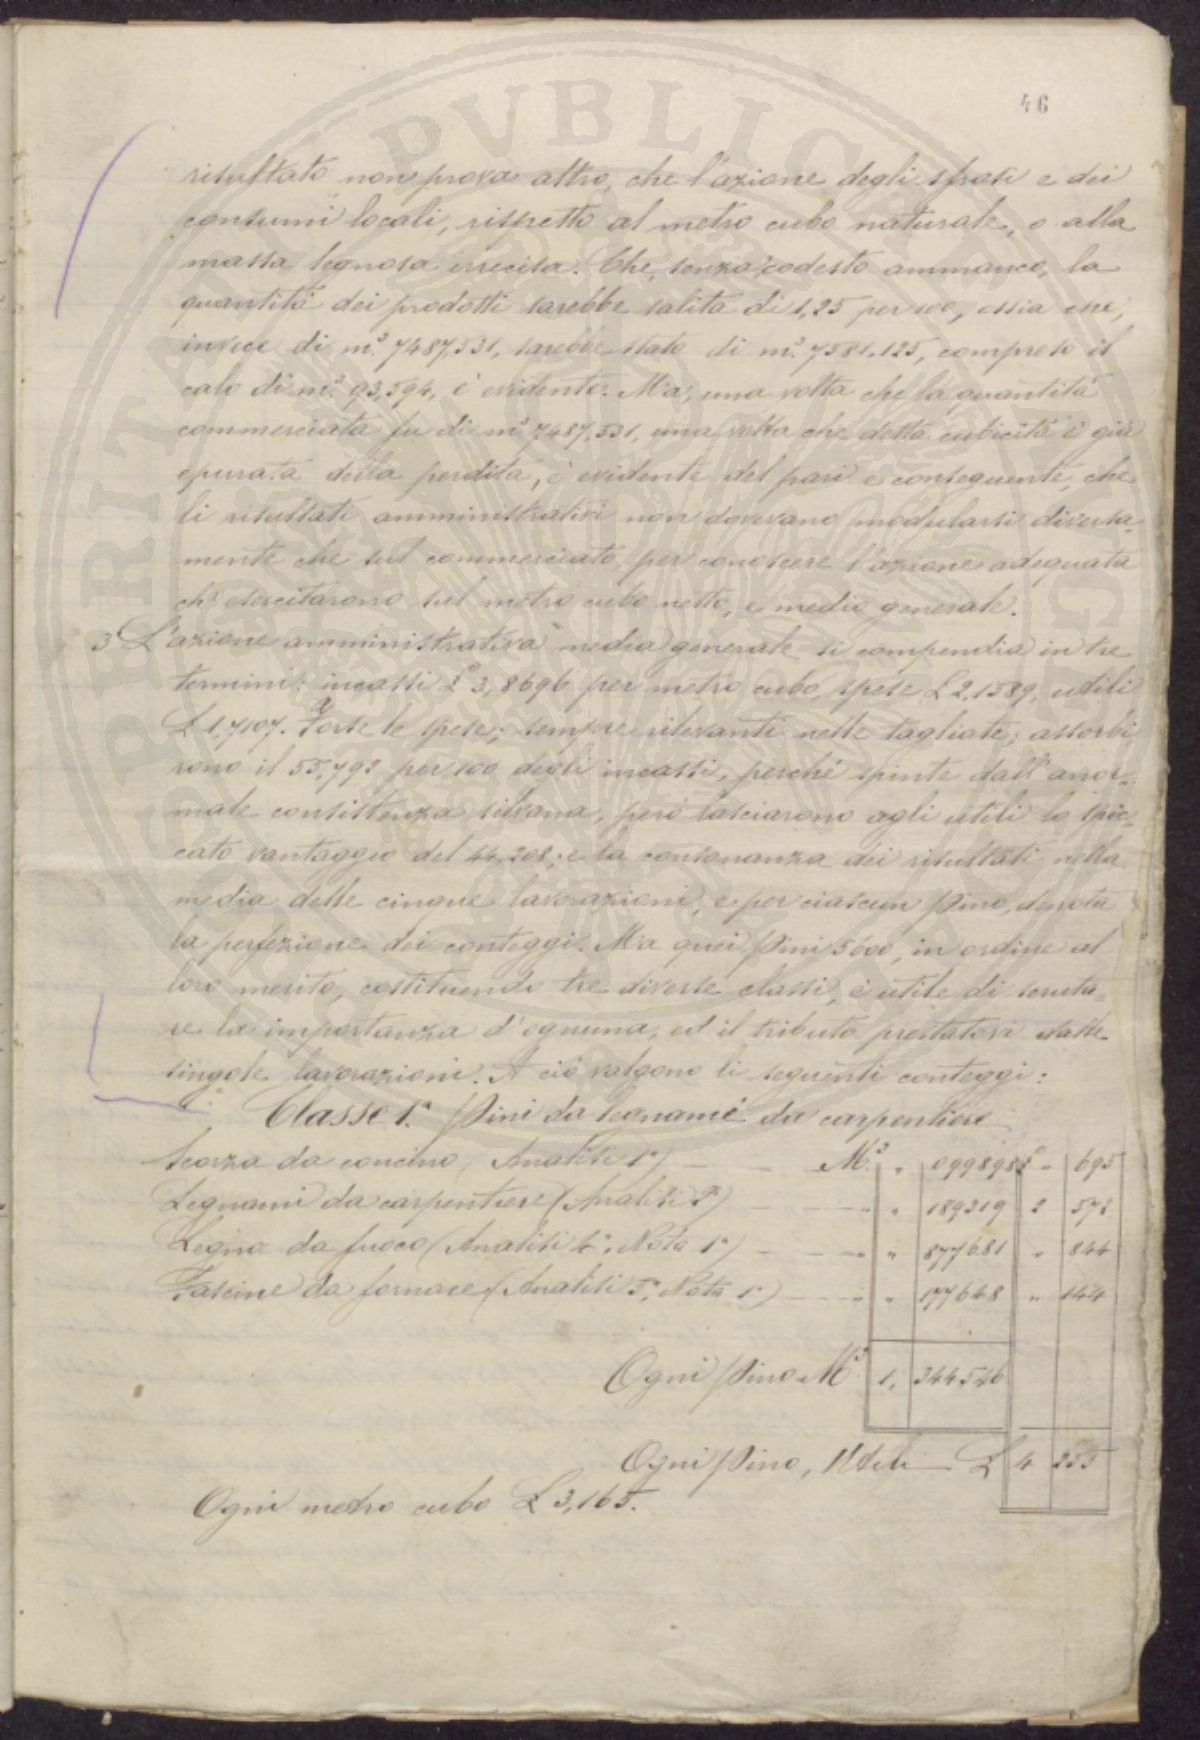 46
risultato non prova altro, che l'azione degli sfrosi e dei
consumi locali, rispetto al metro cubo naturale, o alla
massa legnosa irrecisa. Che, senza codesto ammanco, la
quantità dei prodotti sarebbe salita di 1,25 per 100, ossia che,
invece di m.³ 7487,531, sarebbe stata di m.³ 7581.125, compreso il
calo di m.³ 93,594, è evidente. Ma, una volta che la quantità
commerciata fu di m.³ 7487,531, una volta che detta cubicità è già
epurata della perdita, è evidente del pari e conseguente, che
li risultati amministrativi non dovevano modularsi diversa-
mente che sul commerciato, per conoscere l'azione adeguata
ch' esercitarono sul metro cubo netto, e medio generale.
3 L'azione amministrativa media generale si compendia in tre
termini: incassi £ 3,8696 per metro cubo, spese £ 2,1589, utili
£ 1,7107. Forse le spese; sempre rilevanti nelle tagliate; assorbi
rono il 55,792 per 100 degli incassi, perché spinte dall' anor-
male consistenza silvana, però lasciarono agli utili lo spic-
cato vantaggio del 44,208; e la consonanza dei risultati nella
media delle cinque lavorazioni, e per ciascun Pino, denota
la perfezione dei conteggi. Ma quei Pini 5600, in ordine al
loro merito, costituendo tre diverse classi, è utile di scruta-
re la importanza d'ognuna, ed il tributo prestatovi dalle
singole lavorazioni. A ciò valgono li seguenti conteggi:
Classe 1ª Pini da legnami da carpentiere
Scorza da concino (Analisi 1ª) — — M.³ „ 099898 £ „ 695
Legnami da carpentiere (Analisi 2ª) — — — „ „ 189319 2 572
Legna da fuoco (Analisi 4ª, Nota 1ª) — — — „ 877681 „ 844
Fascine da fornace (Analisi 5ª, Nota 1ª) — — „ „ 177648 „ 144
Ogni Pino M.³ 1, 344546
Ogni Pino, Utili £ 4 255
Ogni metro cubo £ 3,165.